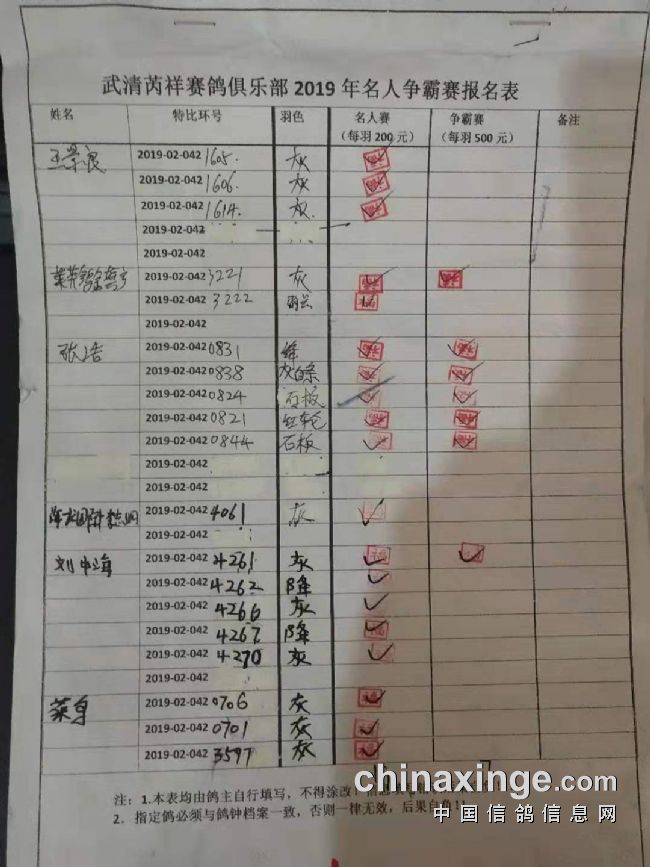 武清芮祥赛鸽俱乐部 2019 年名人争霸赛报名表
姓名 特比环号 羽色 名人赛 争霸赛 备注
(每羽 200 元) (每羽 500 元)
王景良 2019-02-042 1605 灰
2019-02-042 1606 灰
2019-02-042 1614 灰
2019-02-042
2019-02-042
2019-02-042 3221 灰
2019-02-042 3222
2019-02-042
张浩 2019-02-042 0831 绛
2019-02-042 0838 灰白条
2019-02-042 0824 石板
2019-02-042 0821 红轮
2019-02-042 0844 石板
2019-02-042
2019-02-042
2019-02-042 4061 灰
2019-02-042
刘中海 2019-02-042 4261 灰
2019-02-042 4262 降
2019-02-042 4266 灰
2019-02-042 4267 降
2019-02-042 4270 灰
2019-02-042
2019-02-042 0706 灰
2019-02-042 0701 灰
2019-02-042 3597 灰
注：1.本表均由鸽主自行填写，不得涂改
2．指定鸽必须与鸽钟档案一致，否则一律无效，后果自负！
chinaxinge.com
中国信鸽信息网